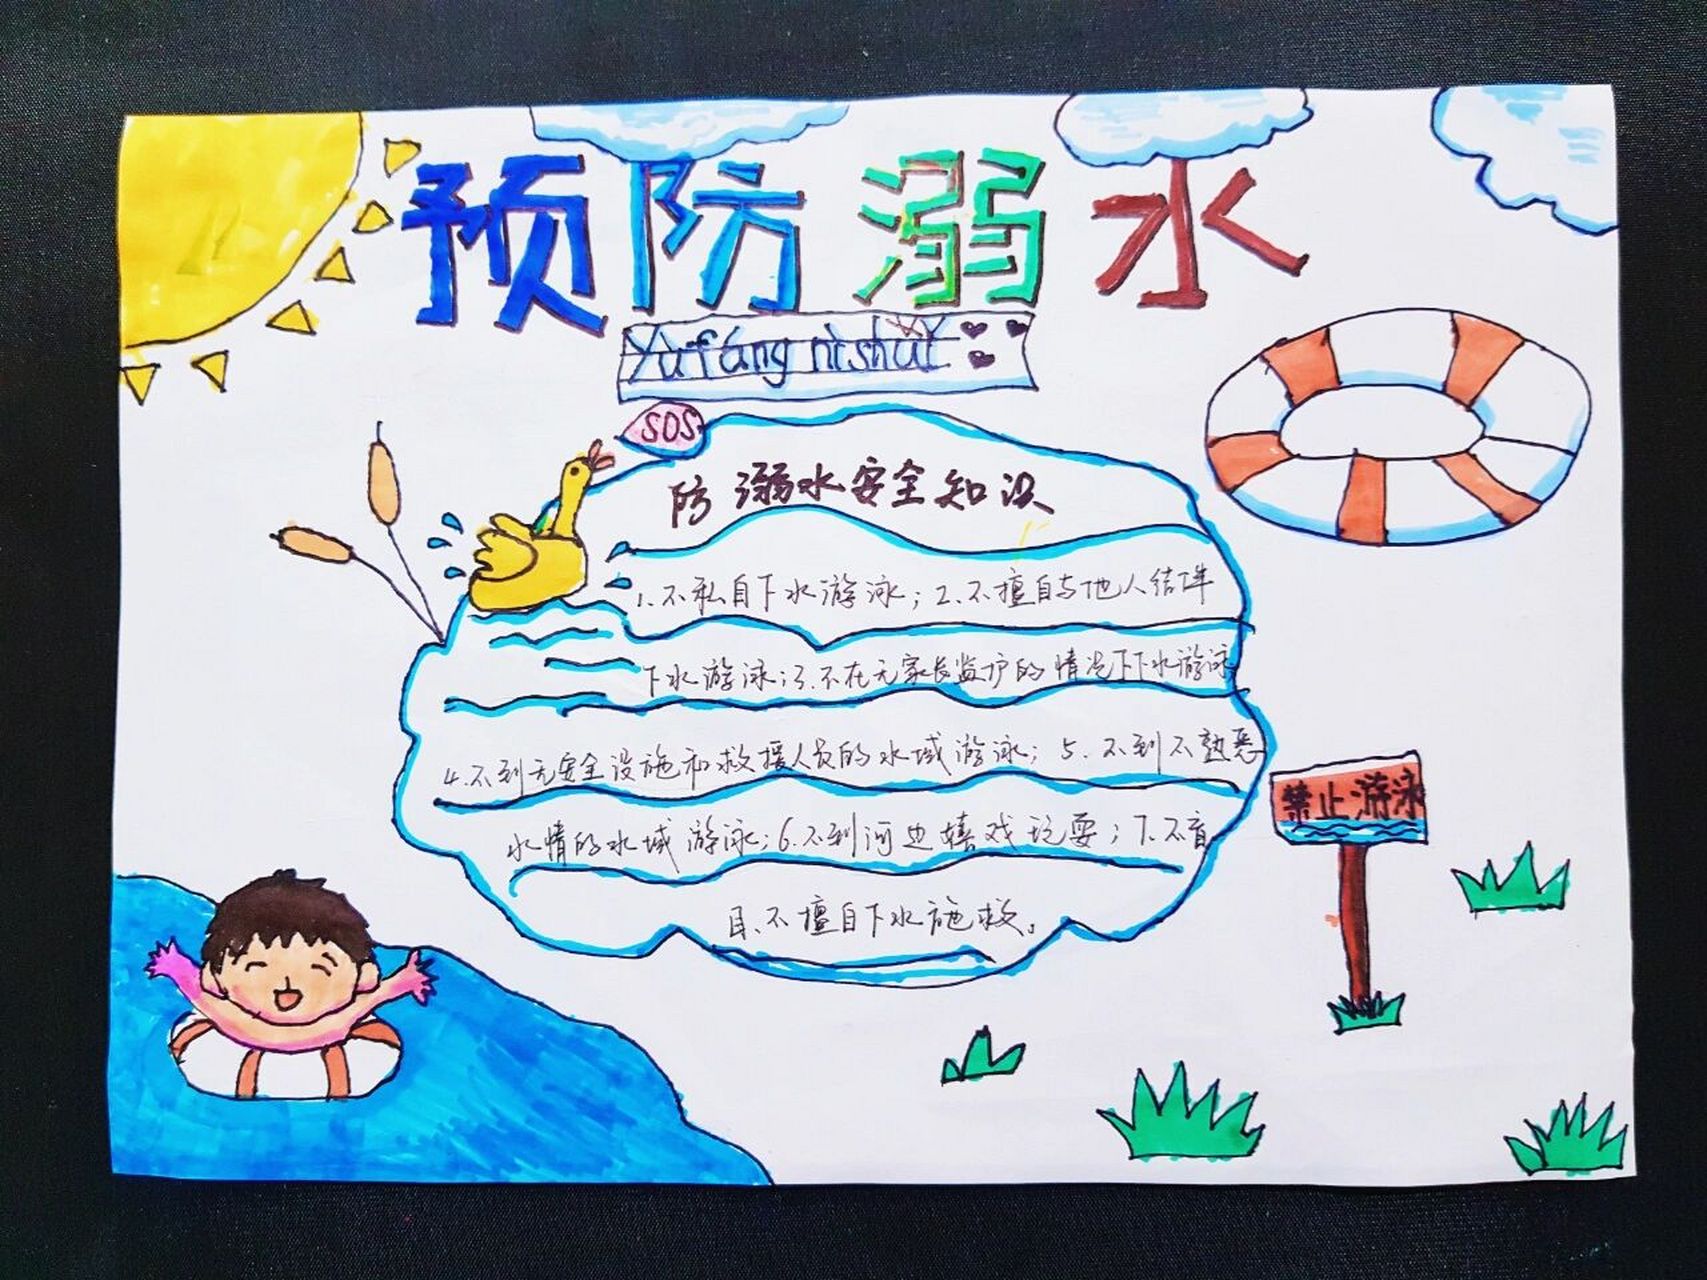 预防溺水
Yùfáng nìshuǐ
SOS
防溺水安全知识
1.不私自下水游泳；2.不擅自与他人结伴
下水游泳；3.不在无家长监护的情况下下水游泳
4.不到无安全设施和救援人员的水域游泳；5.不到不熟悉
水情的水域游泳；6.不到河边嬉戏玩耍；7.不盲
目、不擅自下水施救。
禁止游泳